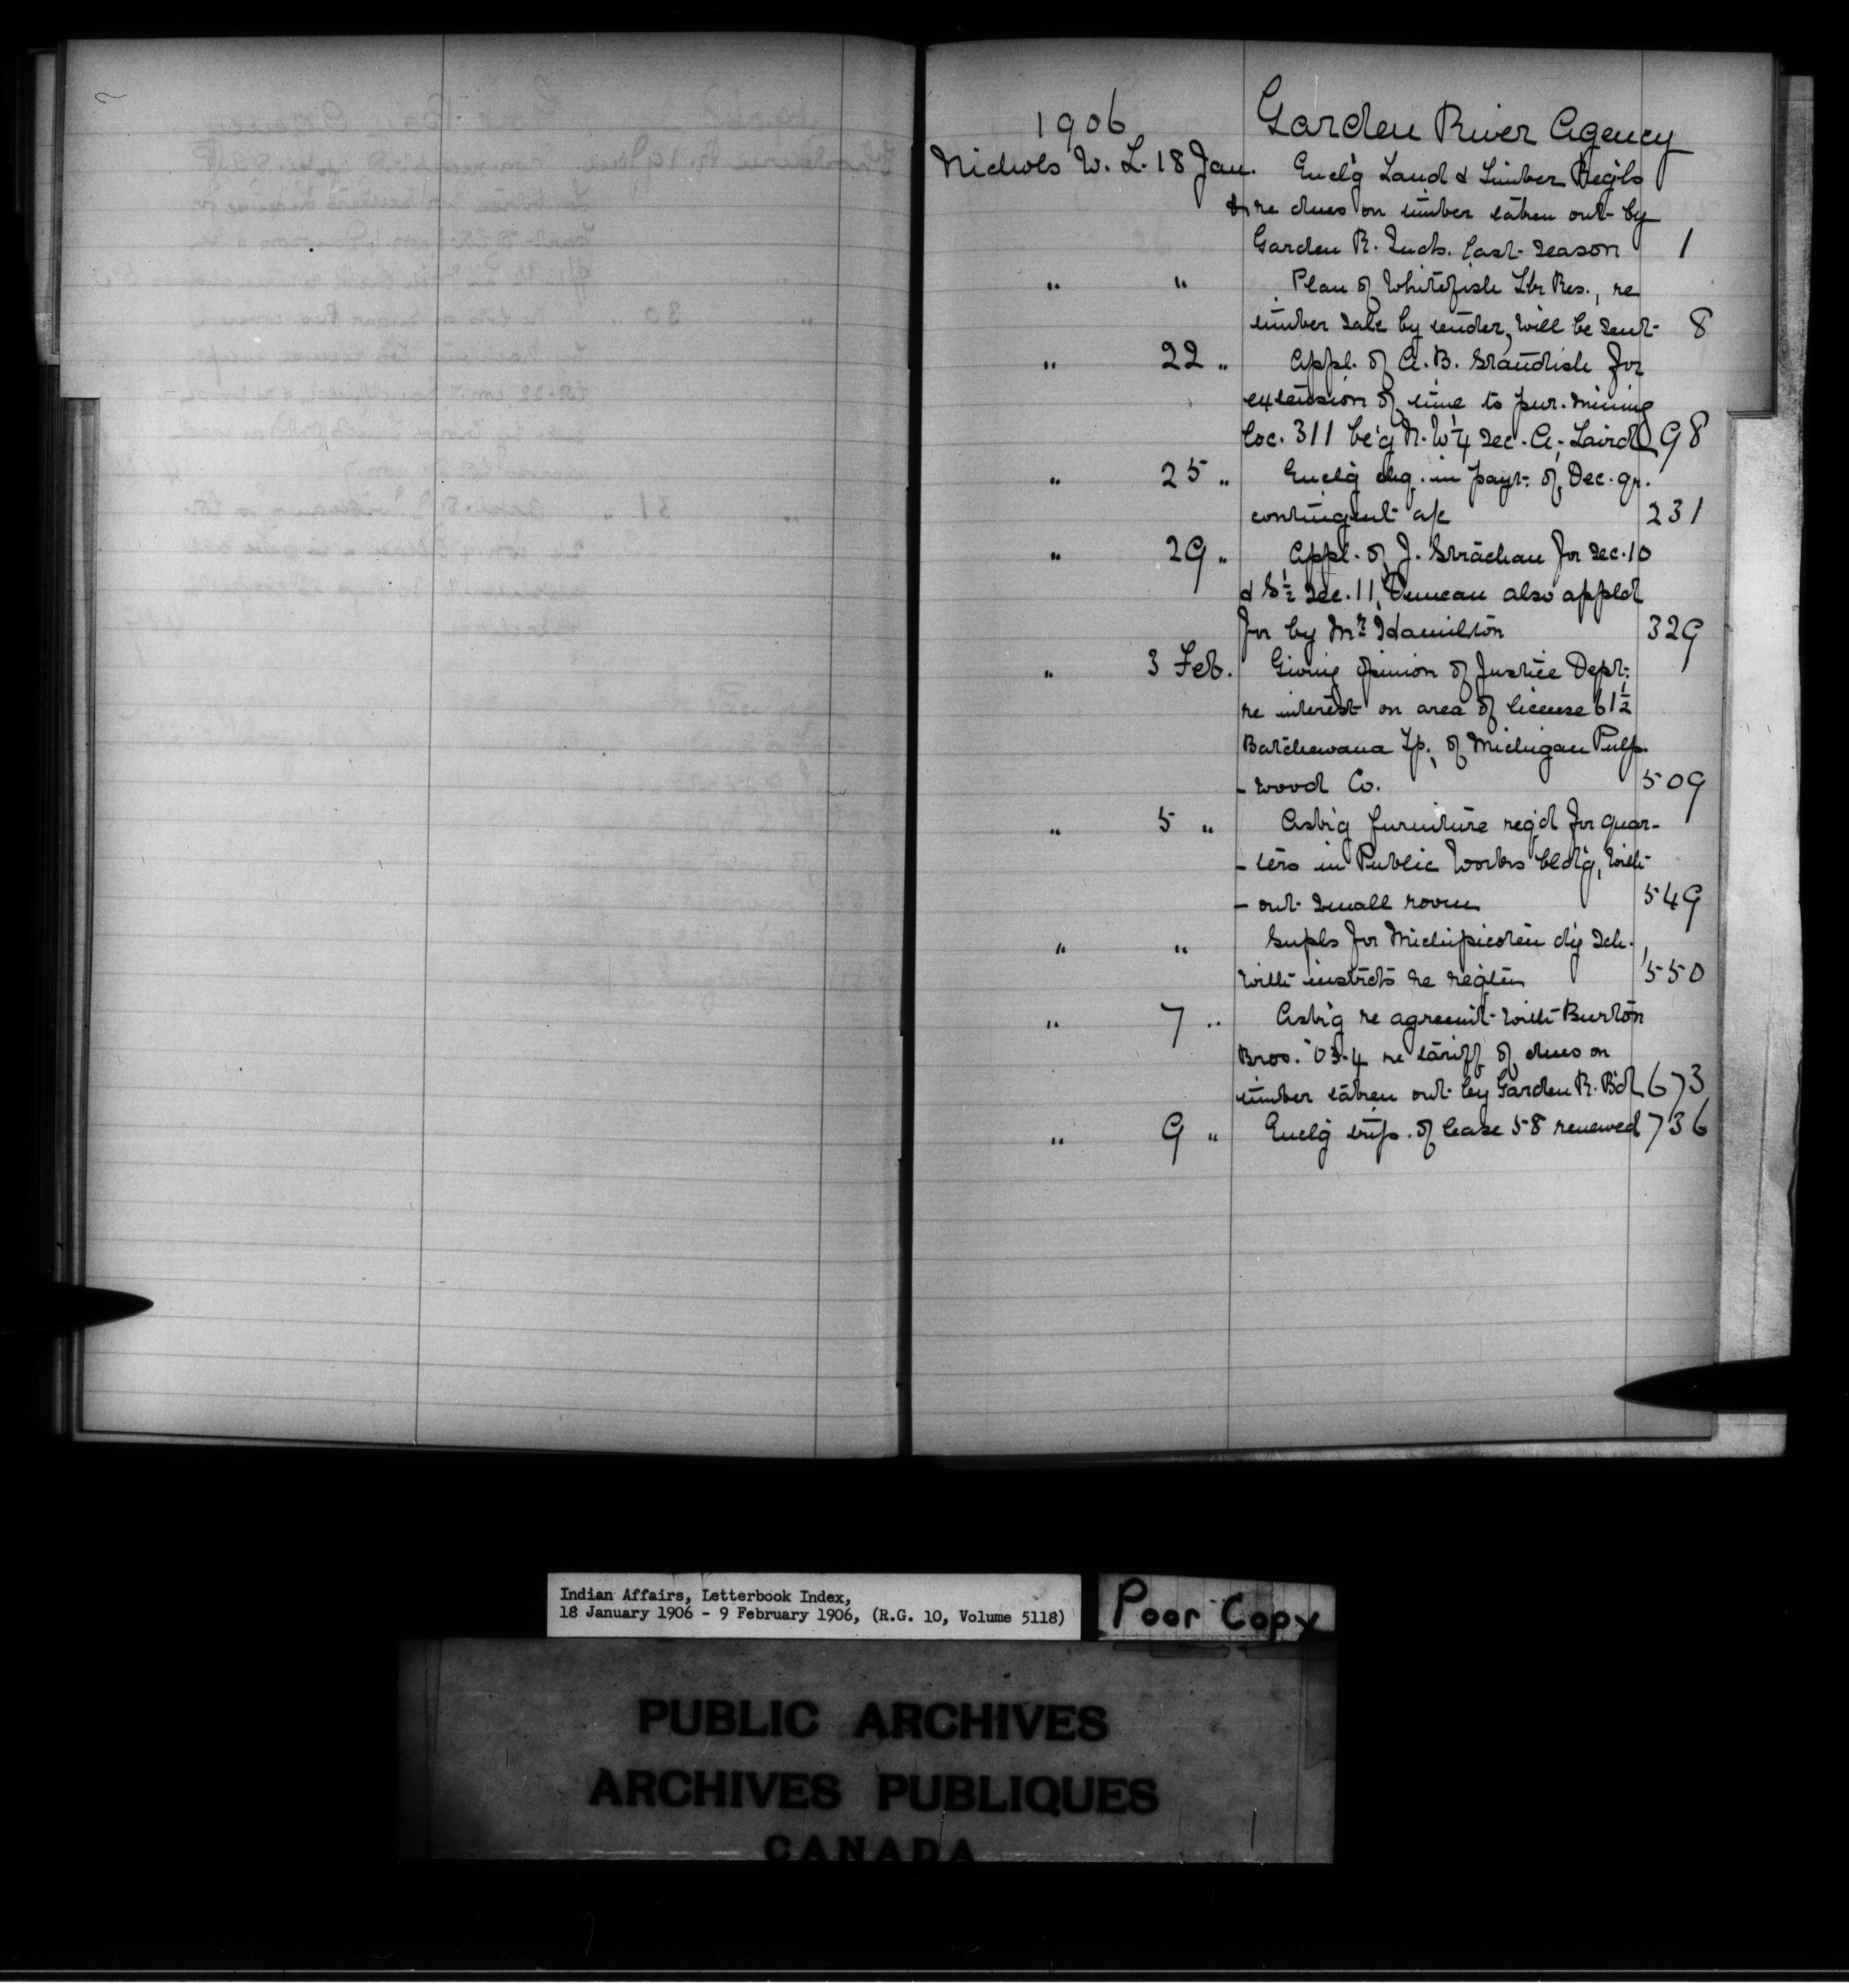 1906 Garden River Agency
Nichols W. L. 18 Jan. Encl'g Land & Timber Reg'ls
& re dues on timber taken out by
Garden R. Inds. last season 1
" " Plan of Whitefish Lk Res., re
timber sale by tender, will be sent 8
" 22 " Appl. of A. B. Standish for
extension of time to pur. mining
loc. 311 be'g N.W¼ sec. A, Laird 98
" 25 " Encl'g chq. in payt. of Dec. qr.
contingent a/c 231
" 29 " Appl. of J. Strachan for sec. 10
& S½ sec. 11, Duncan also appld
for by Mr. Hamilton 329
" 3 Feb. Giving opinion of Justice Dept.
re interest on area of license 61½
Batchewana Tp. of Michigan Pulp-
-wood Co. 509
" 5 " Ask'g furniture req'd for quar-
-ters in Public Works bld'g, with-
-out small room 549
" " Supls for Michipicoten dy sch.,
with instrcts re regtin 550
" 7 " Ask'g re agreemt with Burton
Bros. '03-4 re tariff of dues on
timber taken out by Garden R. B'd 673
" 9 " Encl'g trip. of lease 58 renewed 736
Indian Affairs, Letterbook Index,
18 January 1906 - 9 February 1906, (R.G. 10, Volume 5118)
Poor Copy
PUBLIC ARCHIVES
ARCHIVES PUBLIQUES
CANADA